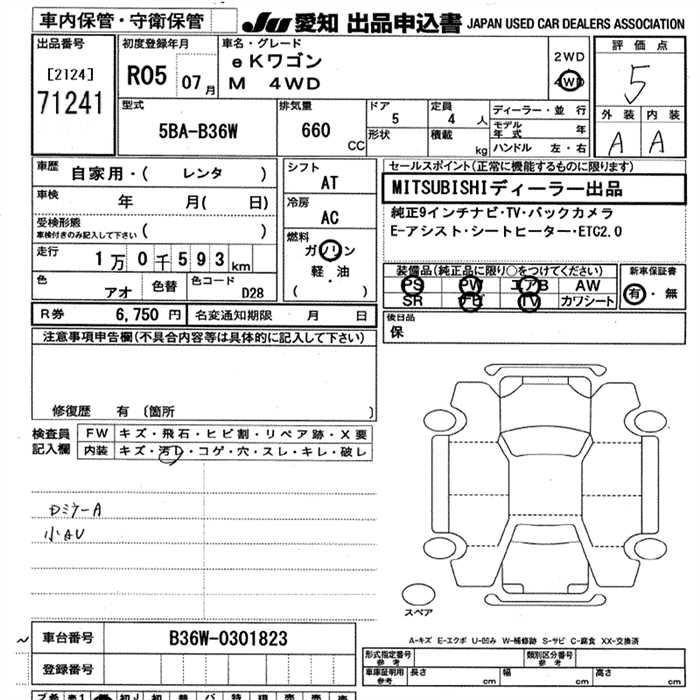 車内保管・守衛保管
JU 愛知 出品申込書 JAPAN USED CAR DEALERS ASSOCIATION
出品番号
[2124]
71241
初度登録年月
R05 07月
車名・グレード
eKワゴン
M 4WD
2WD
4WD
評価点
5
外装 内装
A A
型式
5BA-B36W
排気量
660 CC
ドア
5
形状
定員
4 人
積載
kg
ディーラー・並行
モデル年式 年
ハンドル 左・右
車歴 自家用・( レンタ )
車検 年 月( 日)
受検形態
車検付きのみ記入して下さい ( )
走行 1万0千593km
色 アオ 色替 色コード D28
シフト
AT
冷房
AC
燃料
ガソリン
軽・油
( )
セールスポイント(正常に機能するものに限ります)
MITSUBISHIディーラー出品
純正9インチナビ・TV・バックカメラ
E-アシスト・シートヒーター・ETC2.0
装備品(純正品に限り○をつけてください)
PS PW エアB AW
SR ナビ TV カワシート
新車保証書
有・無
R券 6,750円 名変通知期限 月 日
後日品
保
注意事項申告欄(不具合内容等は具体的に記入して下さい)
修復歴 有 〔箇所 〕
検査員記入欄
FW キズ・飛石・ヒビ割・リペア跡・X要
内装 キズ・汚レ・コゲ・穴・スレ・キレ・破レ
小AU
スペア
A-キズ E-エクボ U-凹み W-補修跡 S-サビ C-腐食 XX-交換済
〜 車台番号 B36W-0301823
登録番号
型式指定番号 参考
類別区分番号 参考
車庫証明用 参考 長さ cm 幅 cm 高さ cm